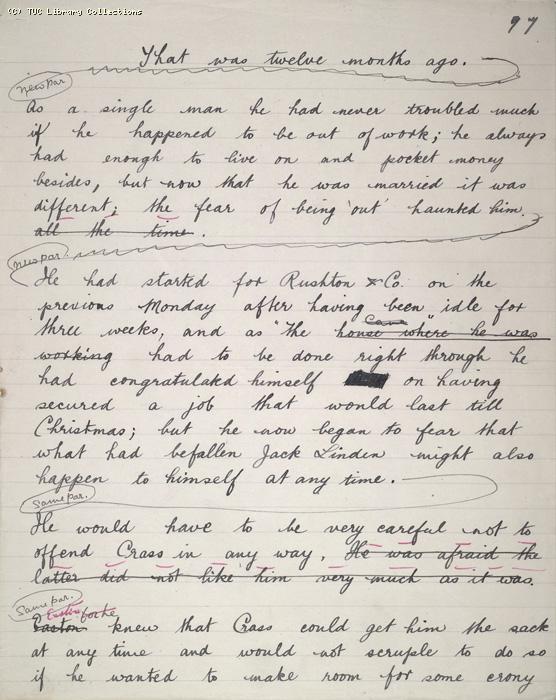 (C) TUC Library Collections
97
That was twelve months ago.
new par
As a single man he had never troubled much
if he happened to be out of work; he always
had enough to live on and pocket money
besides, but now that he was married it was
different; the fear of being 'out' haunted him.
all the time.
new par.
He had started for Rushton & Co. on the
previous Monday after having been idle for
Cave
three weeks, and as "the house" where he was
working had to be done right through he
had congratulated himself on having
secured a job that would last till
Christmas; but he now began to fear that
what had befallen Jack Linden might also
happen to himself at any time.
Same par.
He would have to be very careful not to
offend Crass in any way. He was afraid the
latter did not like him very much as it was.
Same par.
for he
Easton knew that Crass could get him the sack
at any time and would not scruple to do so
if he wanted to make room for some crony